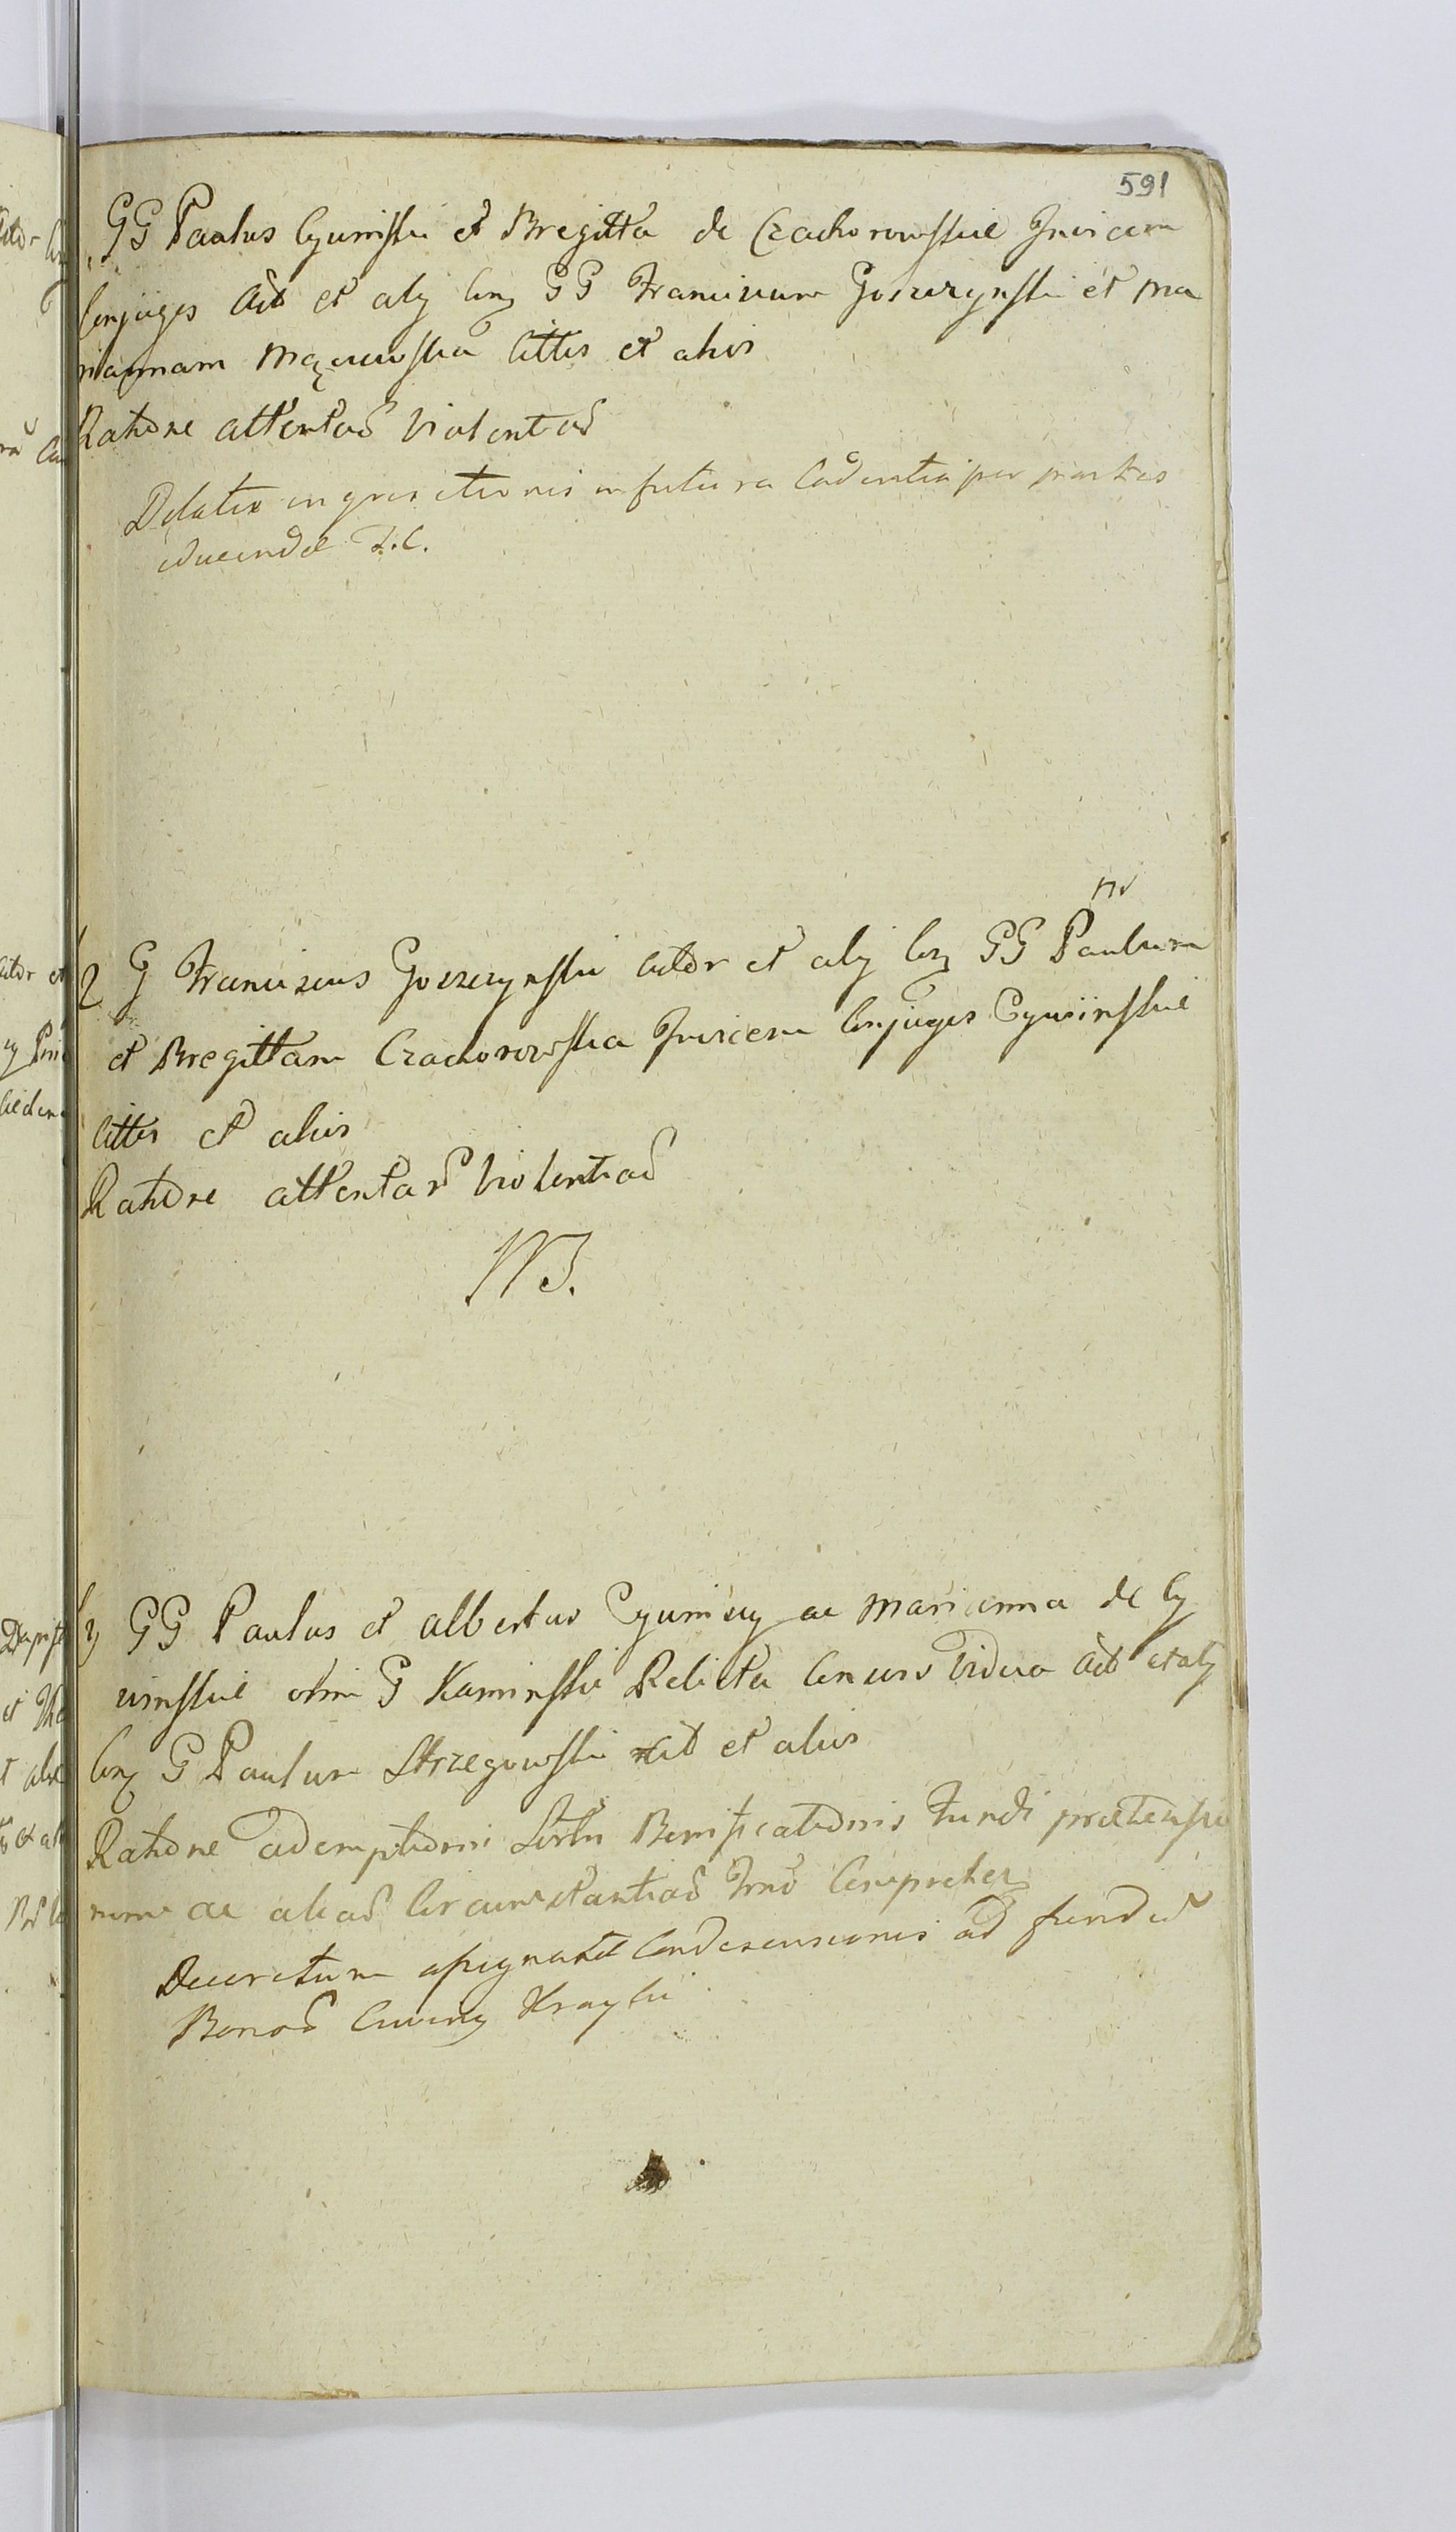 591
GG Paulus Cywiński et Bregitta de Czachorowskie Invicem
Conjuges Act et alij Cong GG Franciscum Goszczynski et Ma
riannam Mączewska Cittos et alios
Ratione attentar Violentiar
Dilatio inquisitionis in futura Cadentia per partes
educendae
nd
2 G Franciscus Goszczynski Actor et alij Con GG Paulum
et Bregittam Czachorowska Invicem Conjuges Cywińskie
Cittos et alios
Ratione attentar Violentiar
3 GG Paulus et Albertus Cywińscy ac Marianna de Cy
wińskie olim G Kaminski Relicta Consors Vidua Act et alij
Con G Paulum Strzegowski Cit et alios
Ratione ademptionis Bonificationis Fundi praetensio
num ac aliar Circumstantiar Compreher
Decretum Condescensionis ad fundum
Bonor